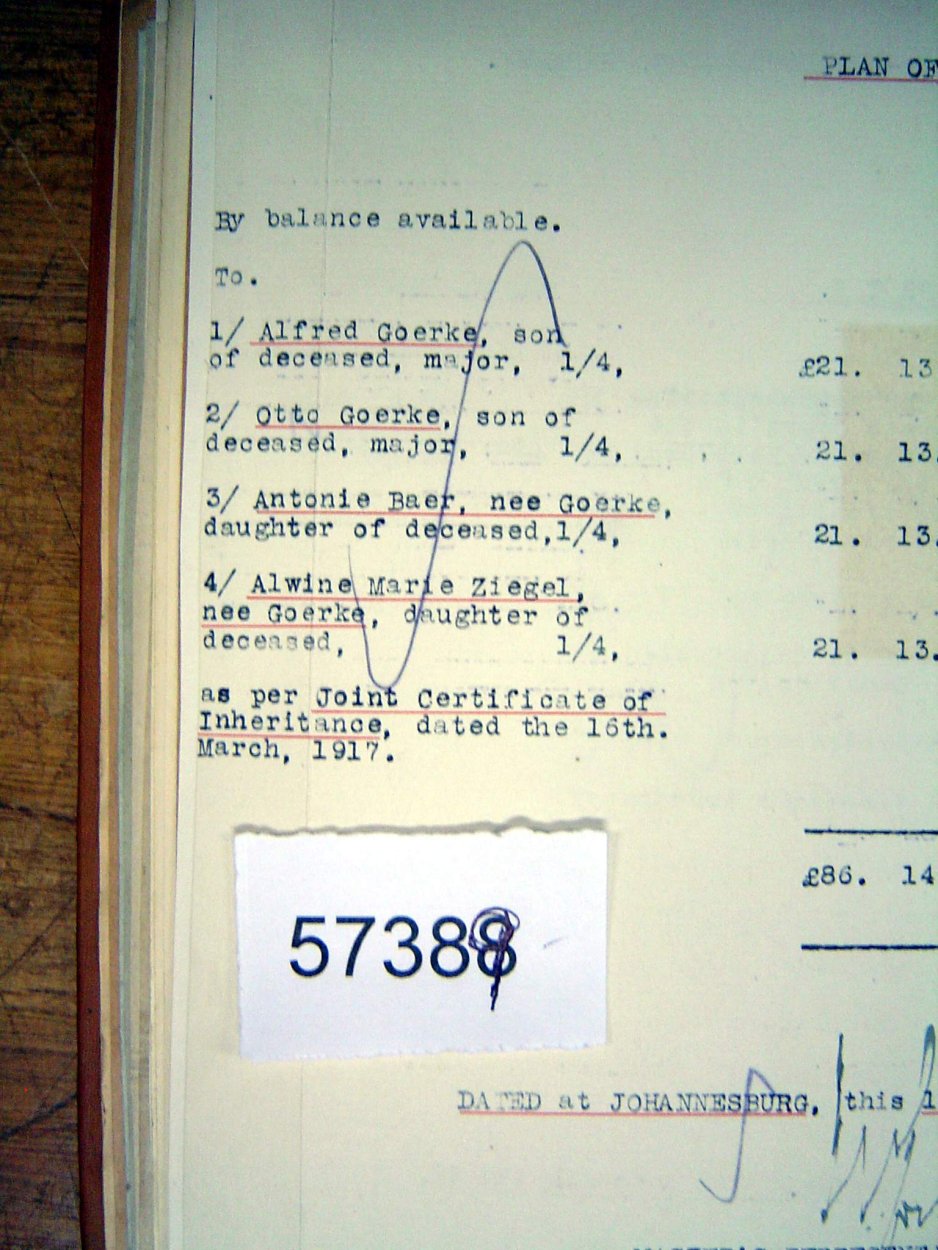 PLAN OF
By balance available.
To.
1/ Alfred Goerke, son
of deceased, major, 1/4, £21. 13
2/ Otto Goerke, son of
deceased, major, 1/4, 21. 13.
3/ Antonie Baer, nee Goerke,
daughter of deceased,1/4, 21. 13.
4/ Alwine Marie Ziegel,
nee Goerke, daughter of
deceased, 1/4, 21. 13.
as per Joint Certificate of
Inheritance, dated the 16th.
March, 1917.
£86. 14
57389
DATED at JOHANNESBURG, this 1